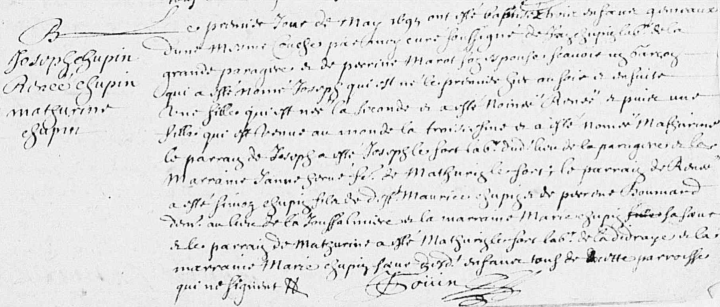 B
Joseph chupin
Renee chupin
mathurine
chupin
Le premier Jour de May 1695 ont esté baptisé trois enfans gemeaux
d'une mesme couche par curé soussigné de Jan chupin lab.r de la
grande paragere et de perrine Marot son espouse sçavoir un garcon
qui a esté nommé Joseph qui est né le premier hier au soir et ensuite
une fille qui est née la seconde et a esté nomée Renée et puis une
fille qui est venue au monde la troisiesme et a esté nomée Mathurine
le parrain de Joseph a esté Joseph le fort lab.r dud. lieu de la paragere et la
Marraine Janne fe. de Mathurin le fort, le parrain de Renée
a esté chupin fils de def.t Maurice chupin et de perrine Boumard
dem.t au lieu de la Jouffaliniere et la marraine Marie chupin sa sœur
et le parrain de Mathurine a esté Mathurin le fort lab.r de la et la
marraine Marie chupin sœur desd. enfans tous de cette parroisse
qui ne signent